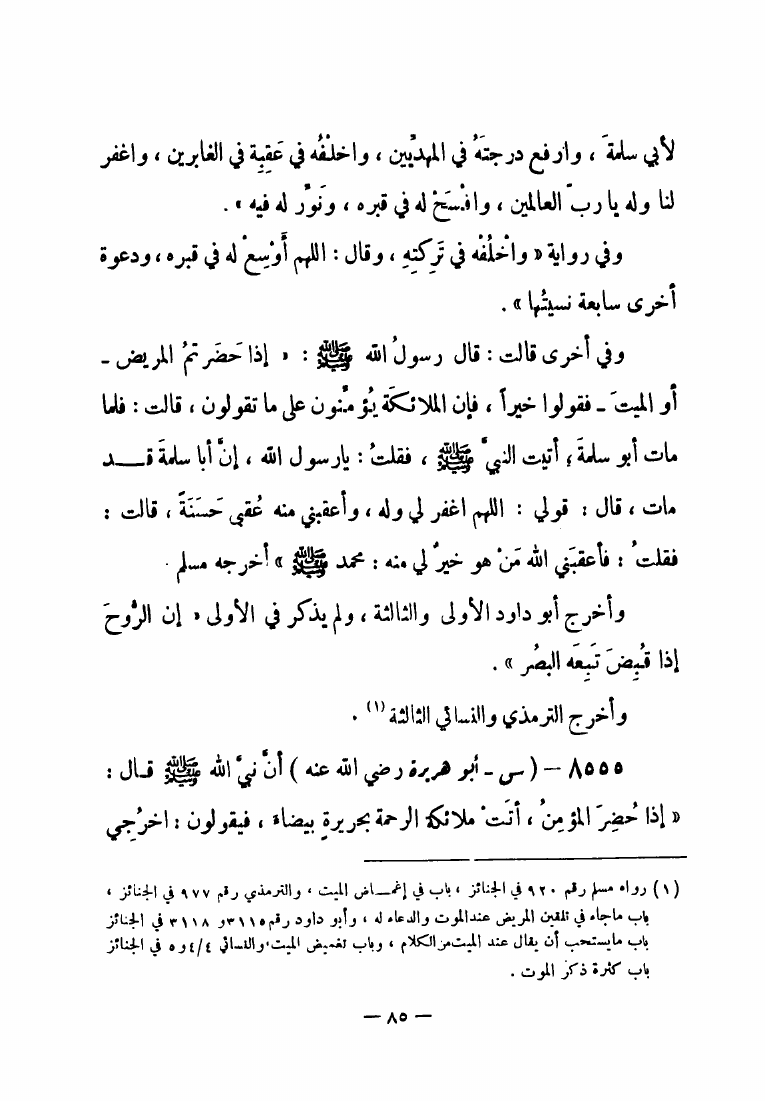 لأبي سلمةَ ، وارفع درجتَهُ في المهديّين ، واخلُفْه في عَقِبِهِ في الغابرين ، واغفر
لنا وله يا ربّ العالمين ، وافْسَحْ له في قبره ، ونَوِّر له فيه » .
وفي رواية « واخْلُفْه في تَرِكتِهِ ، وقال : اللهم أَوْسِعْ له في قبره ، ودعوة
أخرى سابعة نسيتُها » .
وفي أخرى قالت : قال رسولُ الله ﷺ : « إذا حَضَرتمُ المريض ـ
أو الميتَ ـ فقولوا خيراً ، فإن الملائكةَ يُؤمِّنون على ما تقولون ، قالت : فلما
مات أبو سلمةَ ؛ أتيت النبيَّ ﷺ ، فقلتُ : يارسول الله ، إنَّ أبا سلمةَ قـد
مات ، قال : قولي : اللهم اغفر لي وله ، وأعقبني منه عُقبى حَسَنَةً ، قالت :
فقلتُ : فأعقبَني الله مَنْ هو خيرٌ لي منه : محمد ﷺ » أخرجه مسلم .
وأخرج أبو داود الأولى والثالثة ، ولم يذكر في الأولى « إن الرُّوحَ
إذا قُبِضَ تَبِعَه البصُر » .
وأخرج الترمذي والنسائي الثالثة (١) .
٨٥٥٥ – ( س - أبو هريرة رضي الله عنه ) أنَّ نبيَّ الله ﷺ قـال :
« إذا حُضِرَ المؤمِنُ ، أتَتْ ملائكة الرحمة بحريرةٍ بيضاءَ ، فيقولون : اخرُجي
(١) رواه مسلم رقم ٩٢٠ في الجنائز ، باب في إغمـاض الميت ، والترمذي رقم ٩٧٧ في الجنائز ،
باب ماجاء في تلقين المريض عندالموت والدعاء له ، وأبو داود رقم٣١١٥و ٣١١٨ في الجنائز
باب مايستحب أن يقال عند الميت من الكلام ، وباب تغميض الميت، والنسائي ٤/٤و٥ في الجنائز
باب كثرة ذكر الموت .
— ٨٥ —